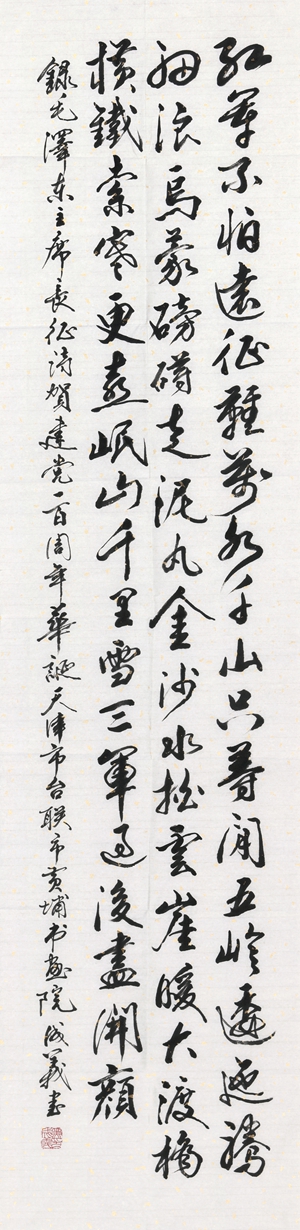 紅軍不怕遠征難萬水千山只等閒五岭逶迤騰
細浪烏蒙磅礴走泥丸金沙水拍雲崖暖大渡橋
橫鐵索寒更喜岷山千里雪三軍過後盡開顏
錄毛澤东主席長征诗賀建党一百周年華誕天津市台联市黄埔书画院成義书